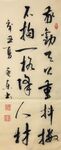 我劝天公重抖擞
不拘一格降人材
辛丑夏